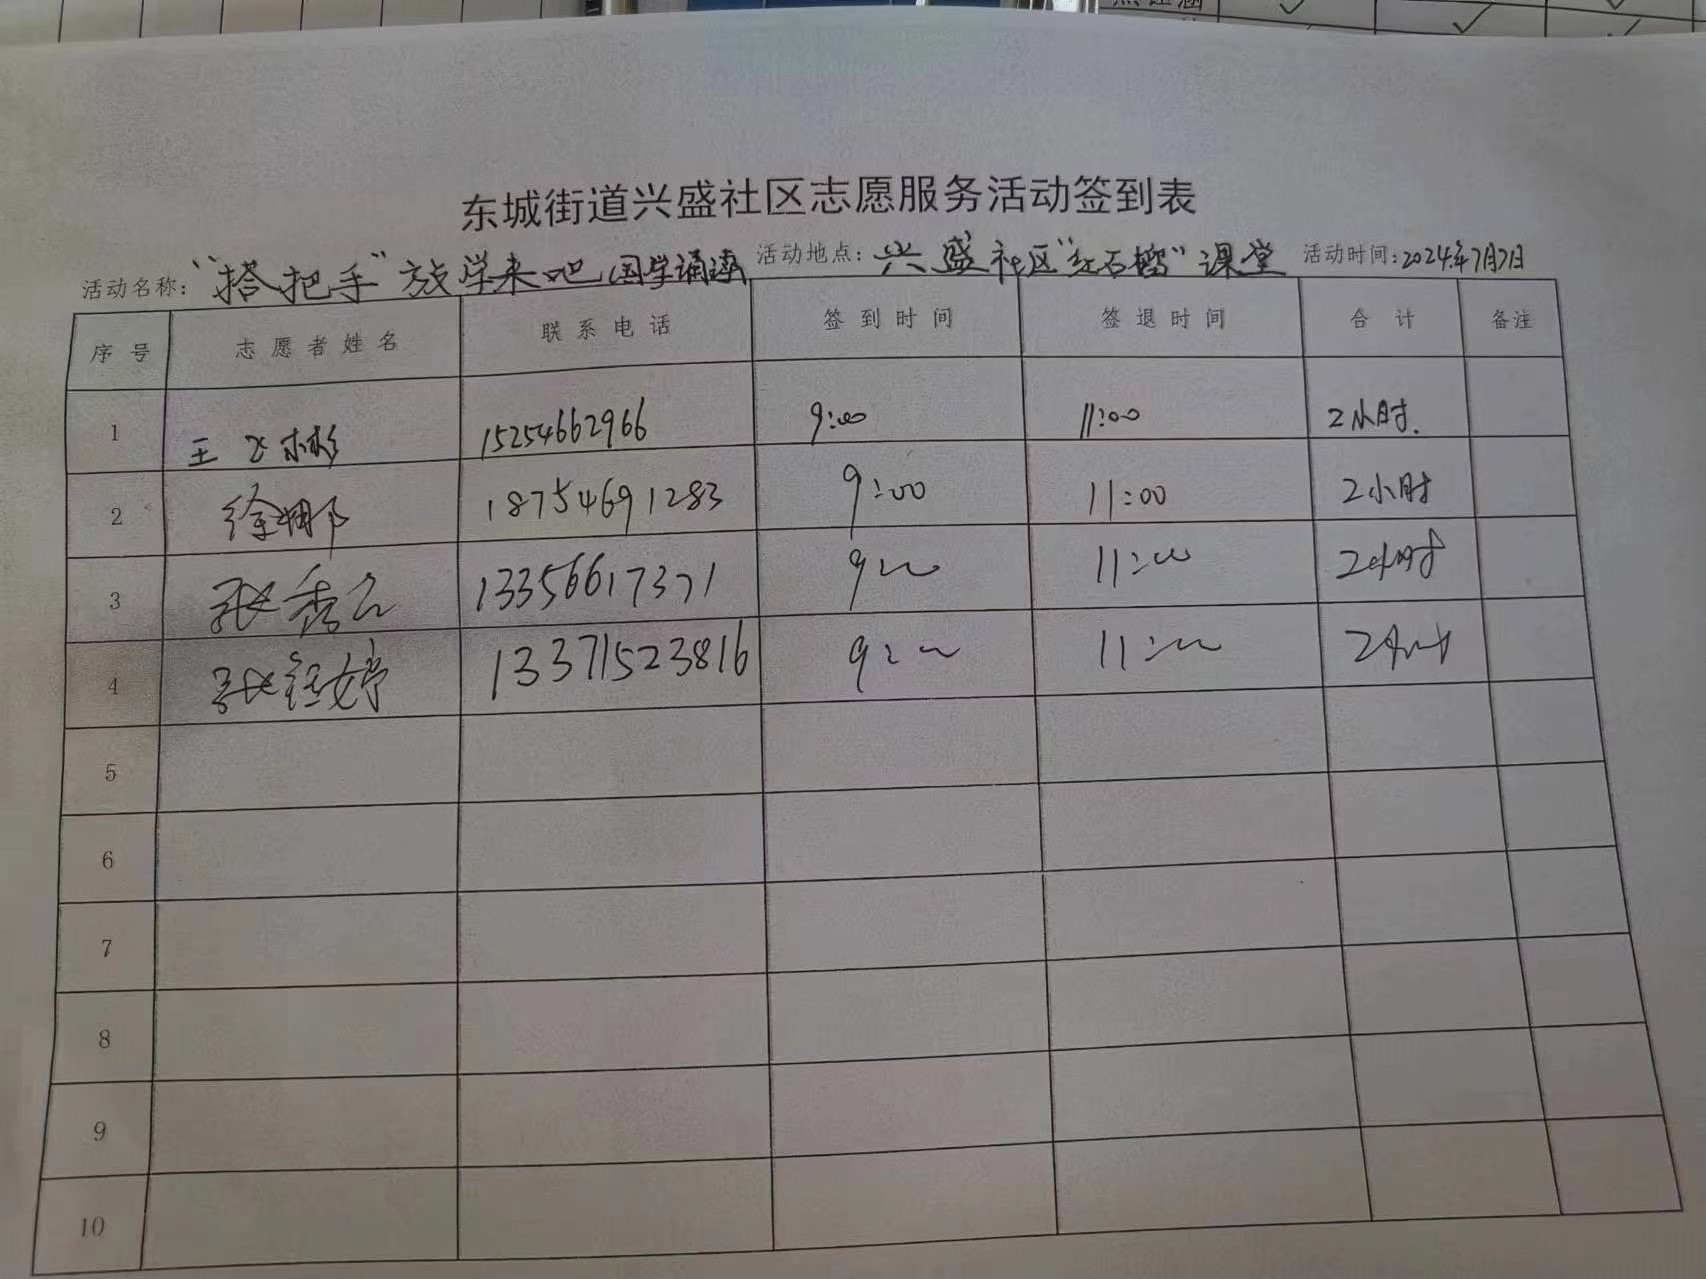 东城街道兴盛社区志愿服务活动签到表
活动名称："搭把手"放学来吧国学诵读 活动地点：兴盛社区"红石榴"课堂 活动时间：2024年7月7日
序号 志愿者姓名 联系电话 签到时间 签退时间 合计 备注
1 王飞彬 15254662966 9:00 11:00 2小时.
2 徐娜 18754691283 9:00 11:00 2小时
3 张秀云 13356617371 9:00 11:00 2小时
4 张钰婷 13371523816 9:00 11:00 2小时
5
6
7
8
9
10